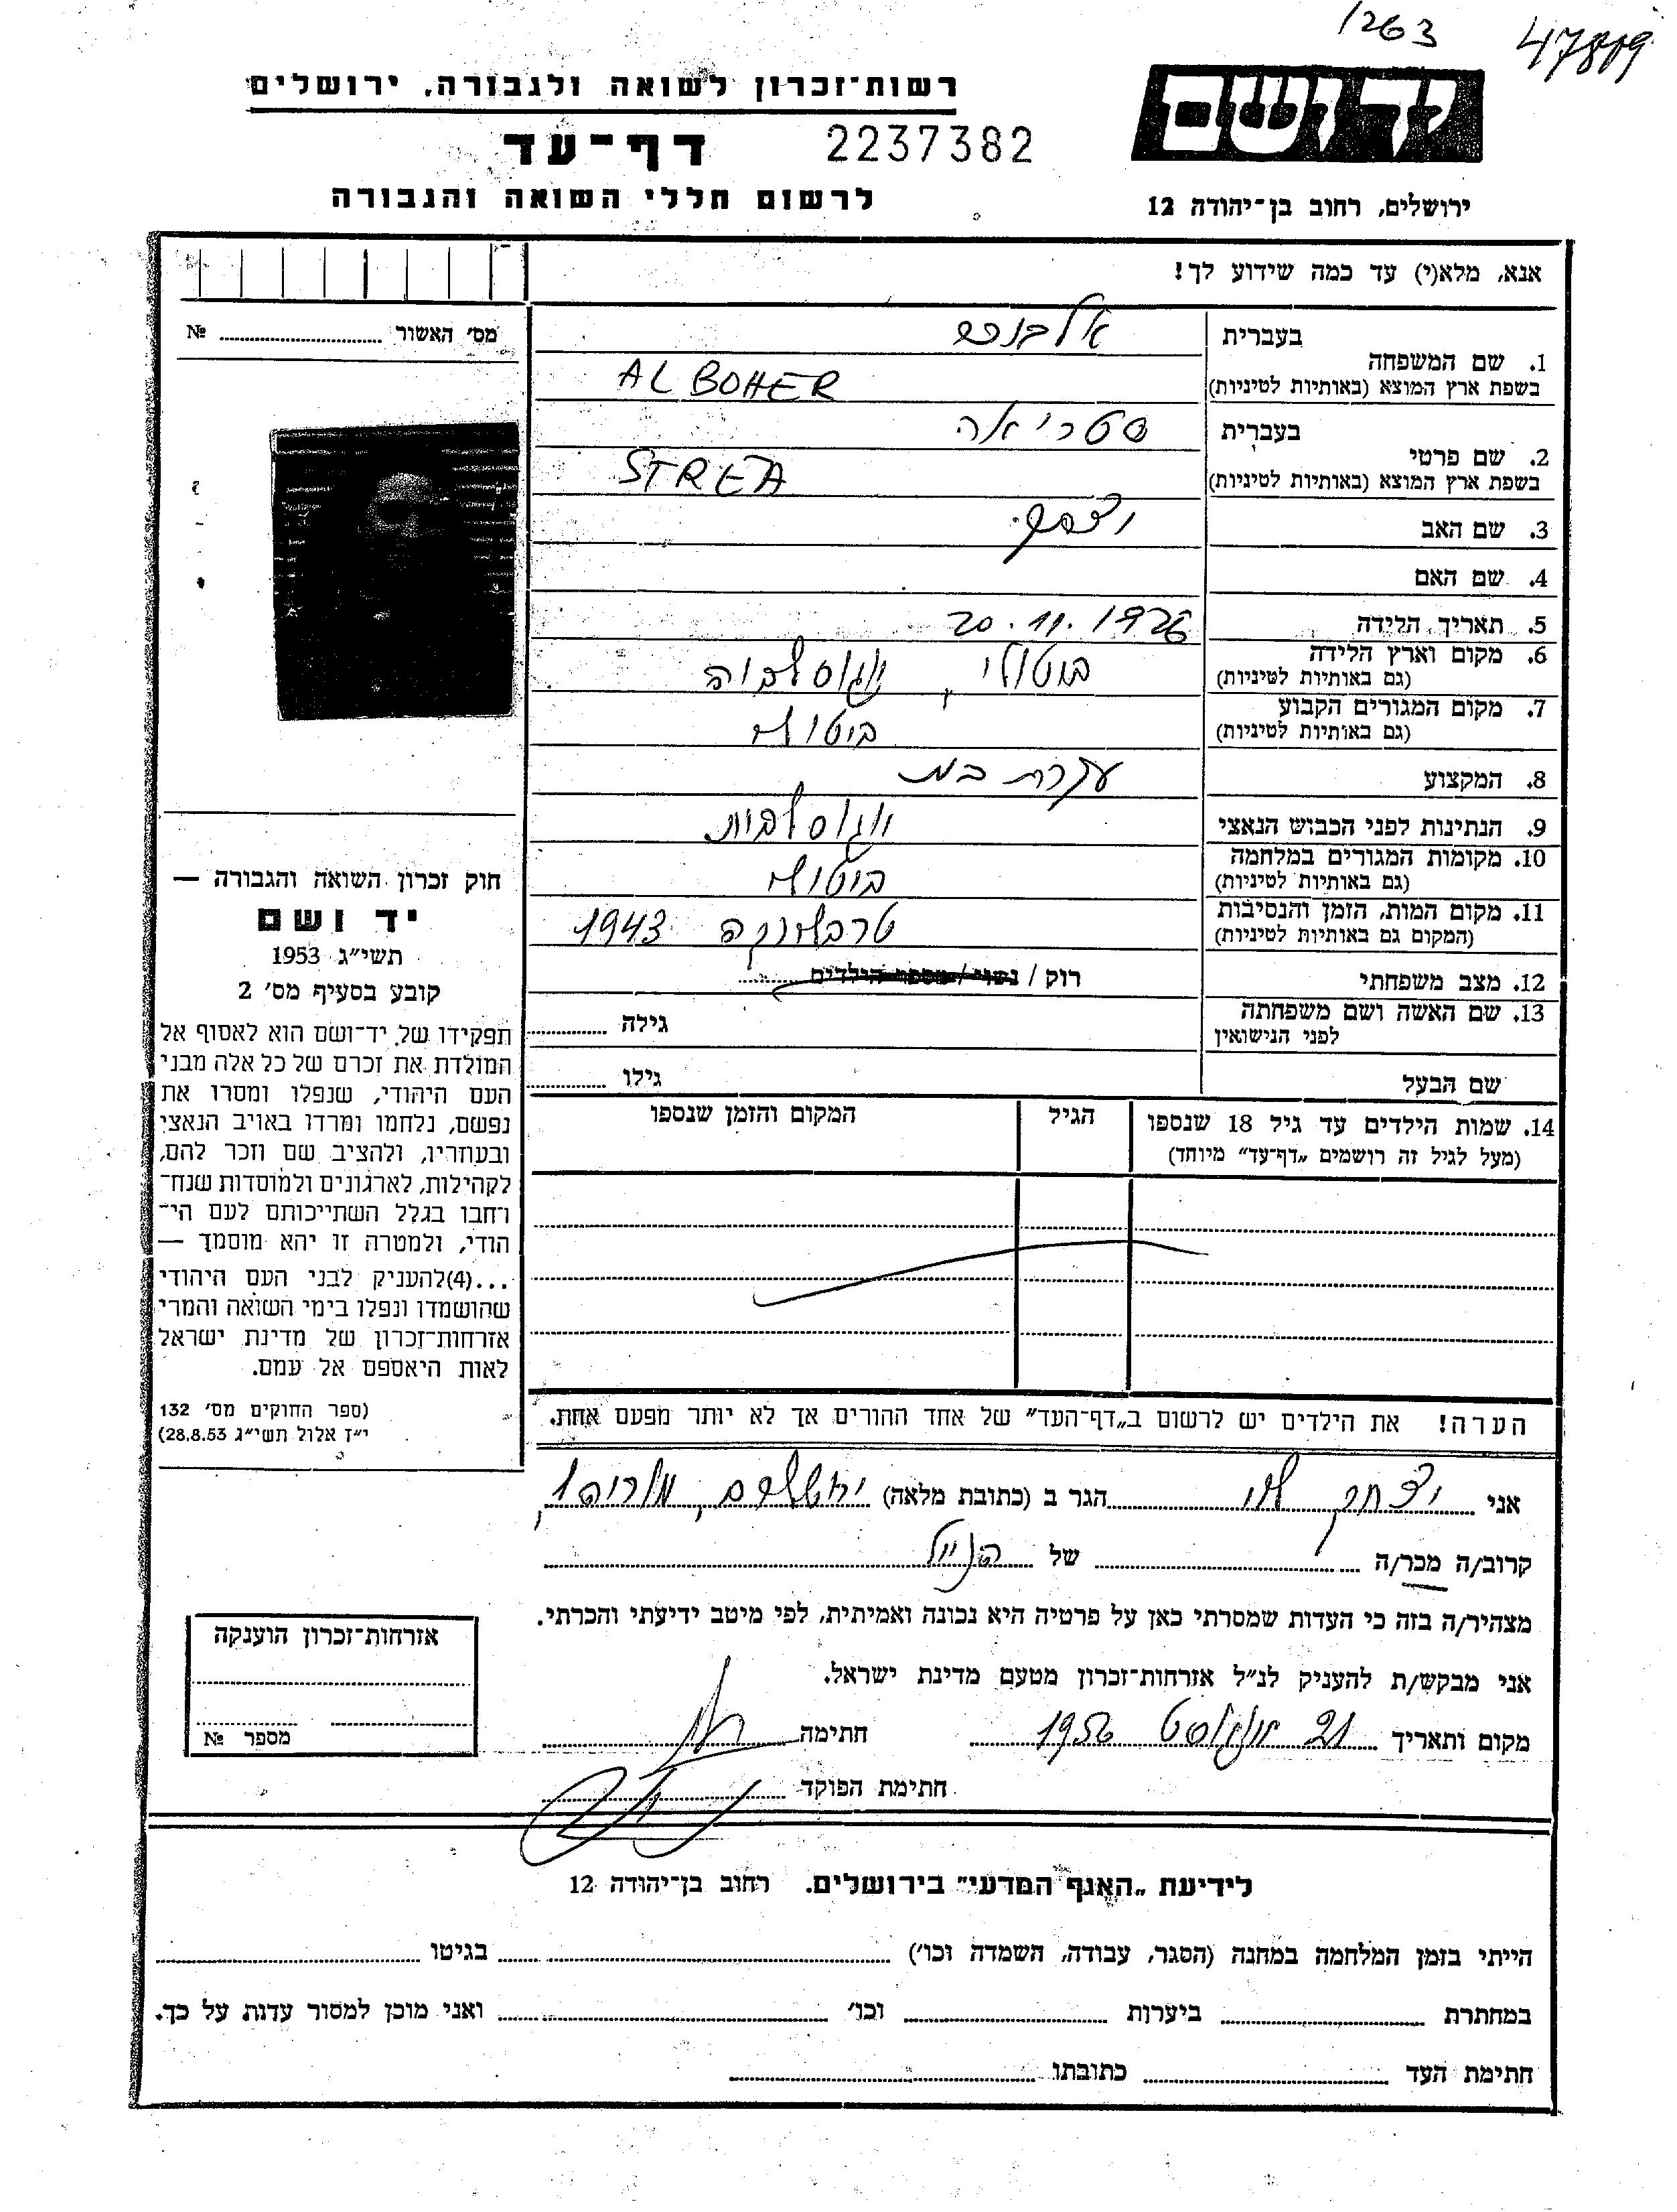 1263
47809
יד ושם
רשות־זכרון לשואה ולגבורה, ירושלים
דף־עד
2237382
לרשום חללי השואה והגבורה
ירושלים, רחוב בן־יהודה 12
אנא, מלא(י) עד כמה שידוע לך!
מס׳ האשור № ..........
1. שם המשפחה
בעברית
בשפת ארץ המוצא (באותיות לטיניות)
ALBOHER
2. שם פרטי
בעברית סטריאה
בשפת ארץ המוצא (באותיות לטיניות)
STREA
3. שם האב יוסף
4. שם האם
5. תאריך הלידה 20.11.1926
6. מקום וארץ הלידה
(גם באותיות לטיניות)
ביטולי, יוגוסלביה
7. מקום המגורים הקבוע
(גם באותיות לטיניות)
ביטולי
8. המקצוע עקרת בית
9. הנתינות לפני הכבוש הנאצי יוגוסלבית
10. מקומות המגורים במלחמה
(גם באותיות לטיניות)
ביטולי
11. מקום המות, הזמן והנסיבות
(המקום גם באותיות לטיניות)
טרבלינקה 1943
12. מצב משפחתי רוק / נשוי / מספר הילדים
13. שם האשה ושם משפחתה
לפני הנישואין
גילה
שם הבעל גילו
14. שמות הילדים עד גיל 18 שנספו
(מעל לגיל זה רושמים „דף־עד” מיוחד)
הגיל
המקום והזמן שנספו
הערה! את הילדים יש לרשום ב„דף־העד” של אחד ההורים אך לא יותר מפעם אחת.
חוק זכרון השואה והגבורה —
יד ושם
תשי״ג 1953
קובע בסעיף מס׳ 2
תפקידו של יד־ושם הוא לאסוף אל
המולדת את זכרם של כל אלה מבני
העם היהודי, שנפלו ומסרו את
נפשם, נלחמו ומרדו באויב הנאצי
ובעוזריו, ולהציב שם וזכר להם,
לקהילות, לארגונים ולמוסדות שנח־
רחבו בגלל השתייכותם לעם הי־
הודי, ולמטרה זו יהא מוסמך —
...(4)להעניק לבני העם היהודי
שהושמדו ונפלו בימי השואה והמרי
אזרחות־זכרון של מדינת ישראל
לאות היאספם אל עמם.
(ספר החוקים מס׳ 132
י״ז אלול תשי״ג 28.8.53)
אני יצחק לוי הגר ב (כתובת מלאה) ירושלים,
קרוב/ה מכר/ה של הנ״ל
מצהיר/ה בזה כי העדות שמסרתי כאן על פרטיה היא נכונה ואמיתית, לפי מיטב ידיעתי והכרתי.
אני מבקש/ת להעניק לנ״ל אזרחות־זכרון מטעם מדינת ישראל.
מקום ותאריך 21 אוגוסט 1956 חתימה
חתימת הפוקד
אזרחות־זכרון הוענקה
מספר №
לידיעת „האגף המדעי” בירושלים. רחוב בן־יהודה 12
הייתי בזמן המלחמה במחנה (הסגר, עבודה, השמדה וכו׳) בגיטו
במחתרת ביערות וכו׳ ואני מוכן למסור עדות על כך.
חתימת העד כתובתו